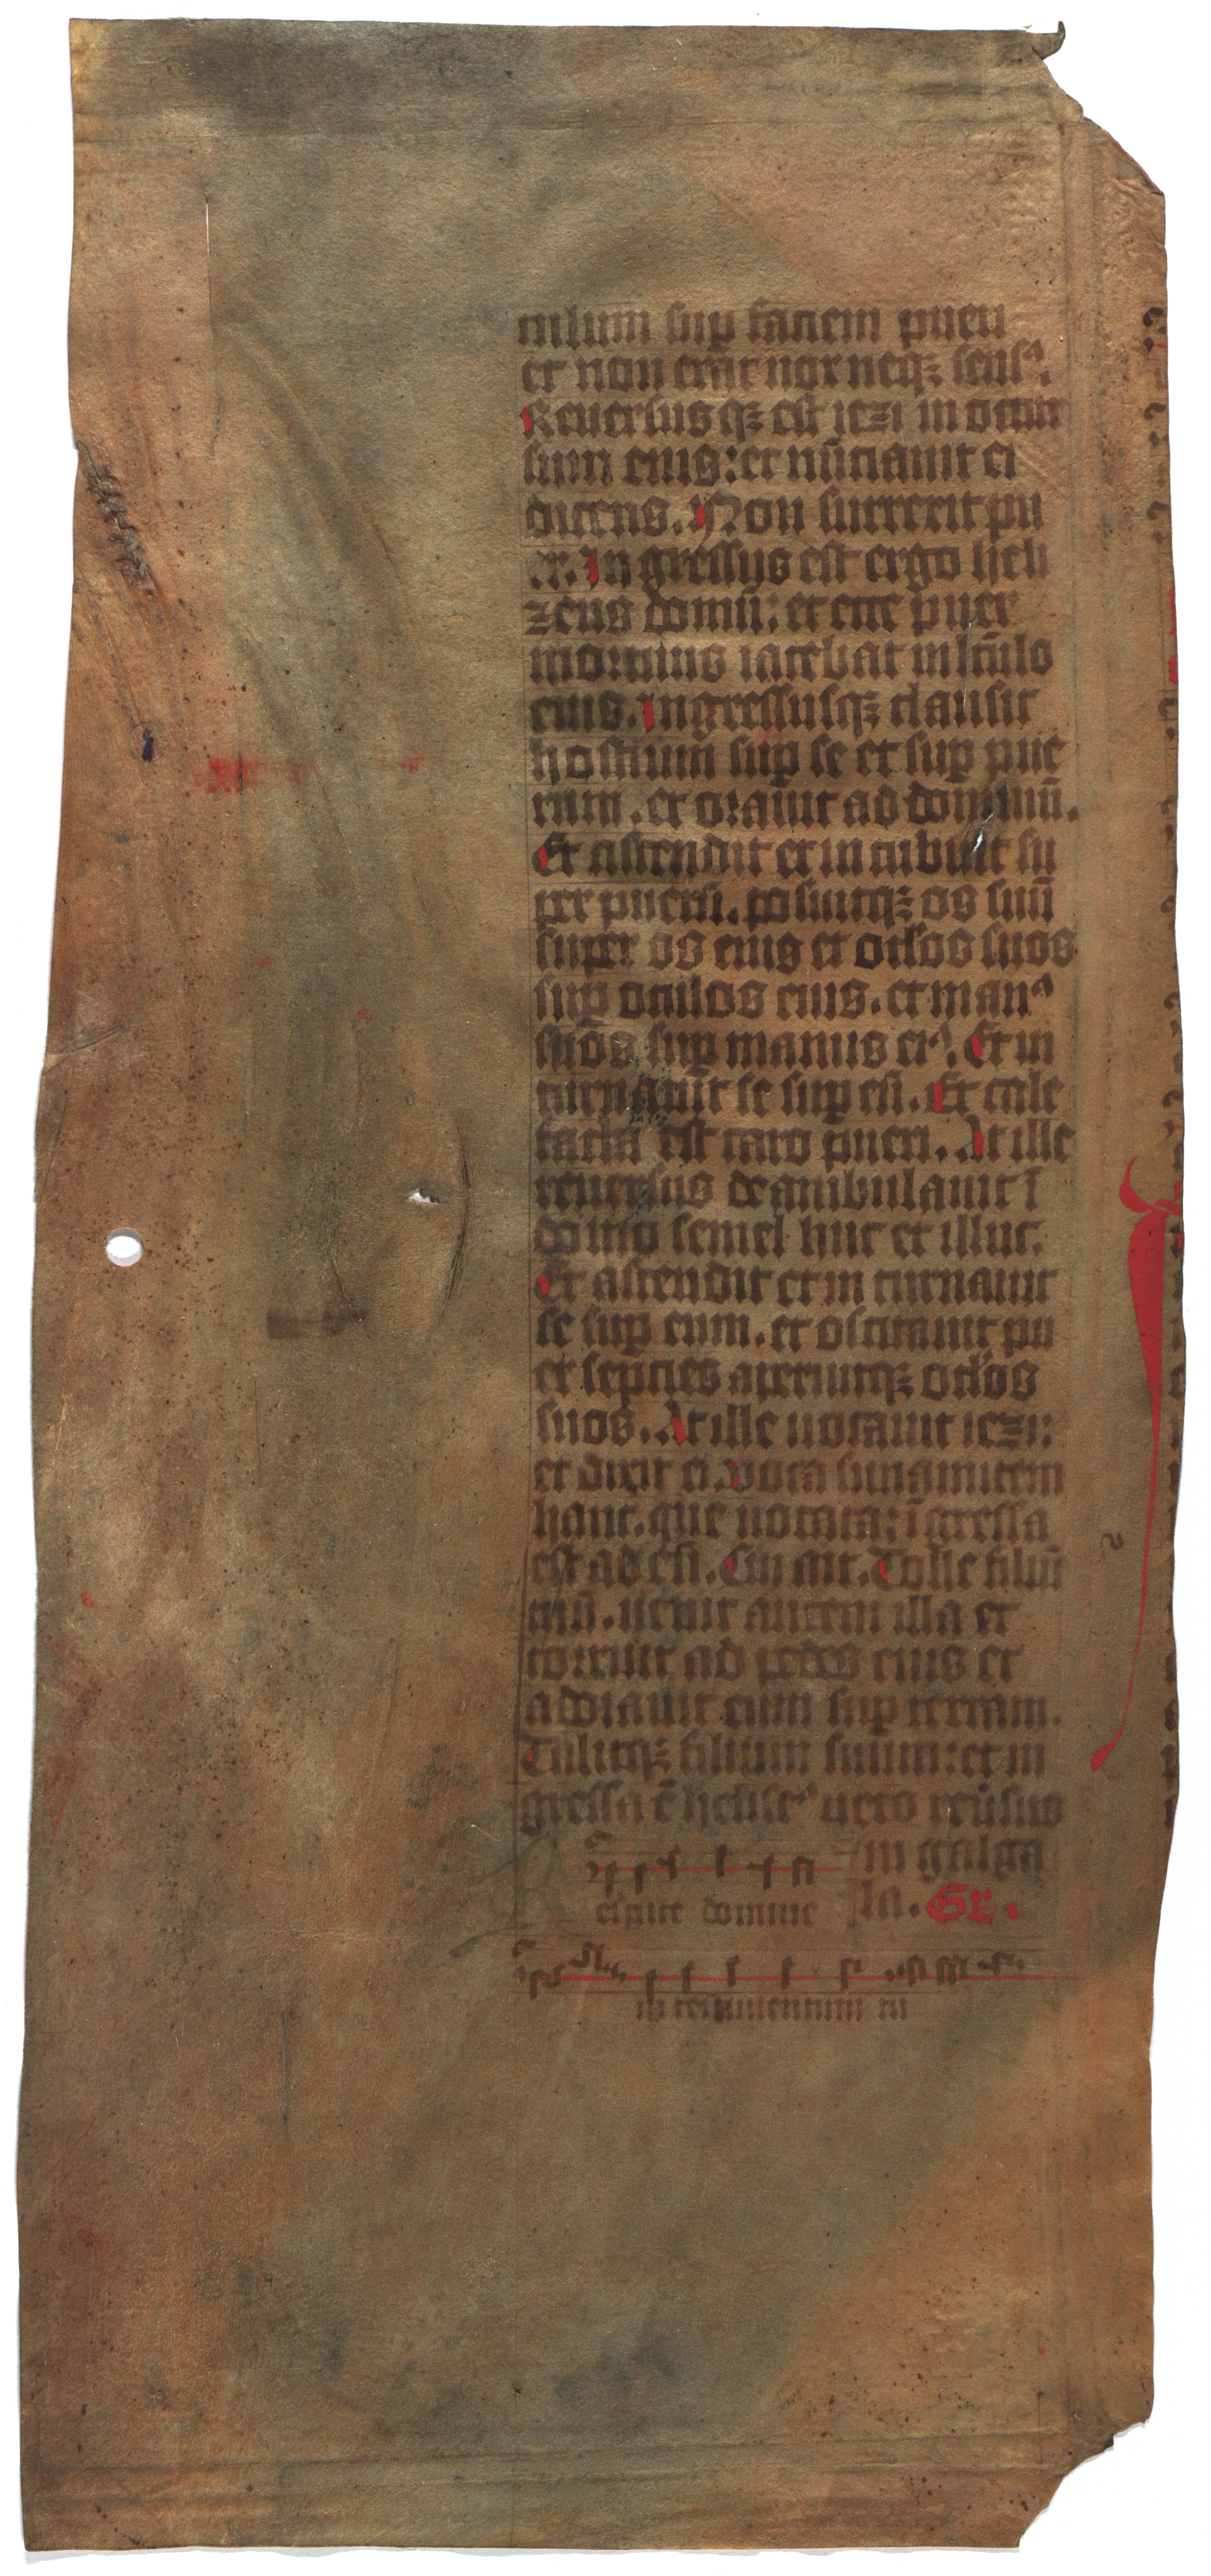 culum sup faciem pueri
et non erat uox neqꝫ sensꝰ.
Reuersusqꝫ est iezi in occur
sum eius: et nūciauit ei
dicens. Non surrexit pu
er. In gressus est ergo heli
zeus domū: et ecce puer
mortuus iacebat in lc̄ulo
eius. ingressusqꝫ clausit
hostium sup se et sup pue
rum. et orauit ad dominū.
Et ascendit et in cubuit su
per puerū. posuitqꝫ os suū
super os eius et oc̄los suos
sup oculos eius. et manꝰ
suas sup manus eiꝰ. Et in
curuauit se sup eū. Et cale
facta est caro pueri. At ille
reuersus deambulauit ī
domo semel huc et illuc.
Et ascendit et in curuauit
se sup eum. et oscitauit pu
er septies aperuitqꝫ oc̄los
suos. At ille uocauit iezi:
et dixit ei. Voca sunamitem
hanc. que uocata: īgressa
est ad eū. Cui ait. Tolle filiū
tuū. uenit autem illa et
corruit ad pedes eius et
adorauit eum sup terram.
Tulitqꝫ filium suum: et in
gressa ē heliseꝰ uero reūsus
in galga
la. Gr.
espice domine
in testamentum tu